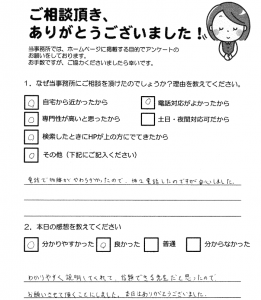 ご相談頂き、
ありがとうございました！
当事務所では、ホームページに掲載する目的でアンケートの
お願いをしております。
お手数ですが、ご協力くださいましたら幸いです。
1．なぜ当事務所にご相談を頂けたのでしょうか？理由を教えてください。
○ 自宅から近かったから ○ 電話対応がよかったから
○ 専門性が高いと思ったから 土日・夜間対応可だから
○ 検索したときにHPが上の方にでてきたから
○ その他（下記にご記入ください）
電話で物腰がやわらかかったので、他も電話したのですが安心しました。
2．本日の感想を教えてください
○ 分かりやすかった ○ 良かった 普通 分からなかった
わかりやすく説明してくれて、信頼できる先生だと思ったので、
お願いさせて頂くことにしました。本日はありがとうございました。